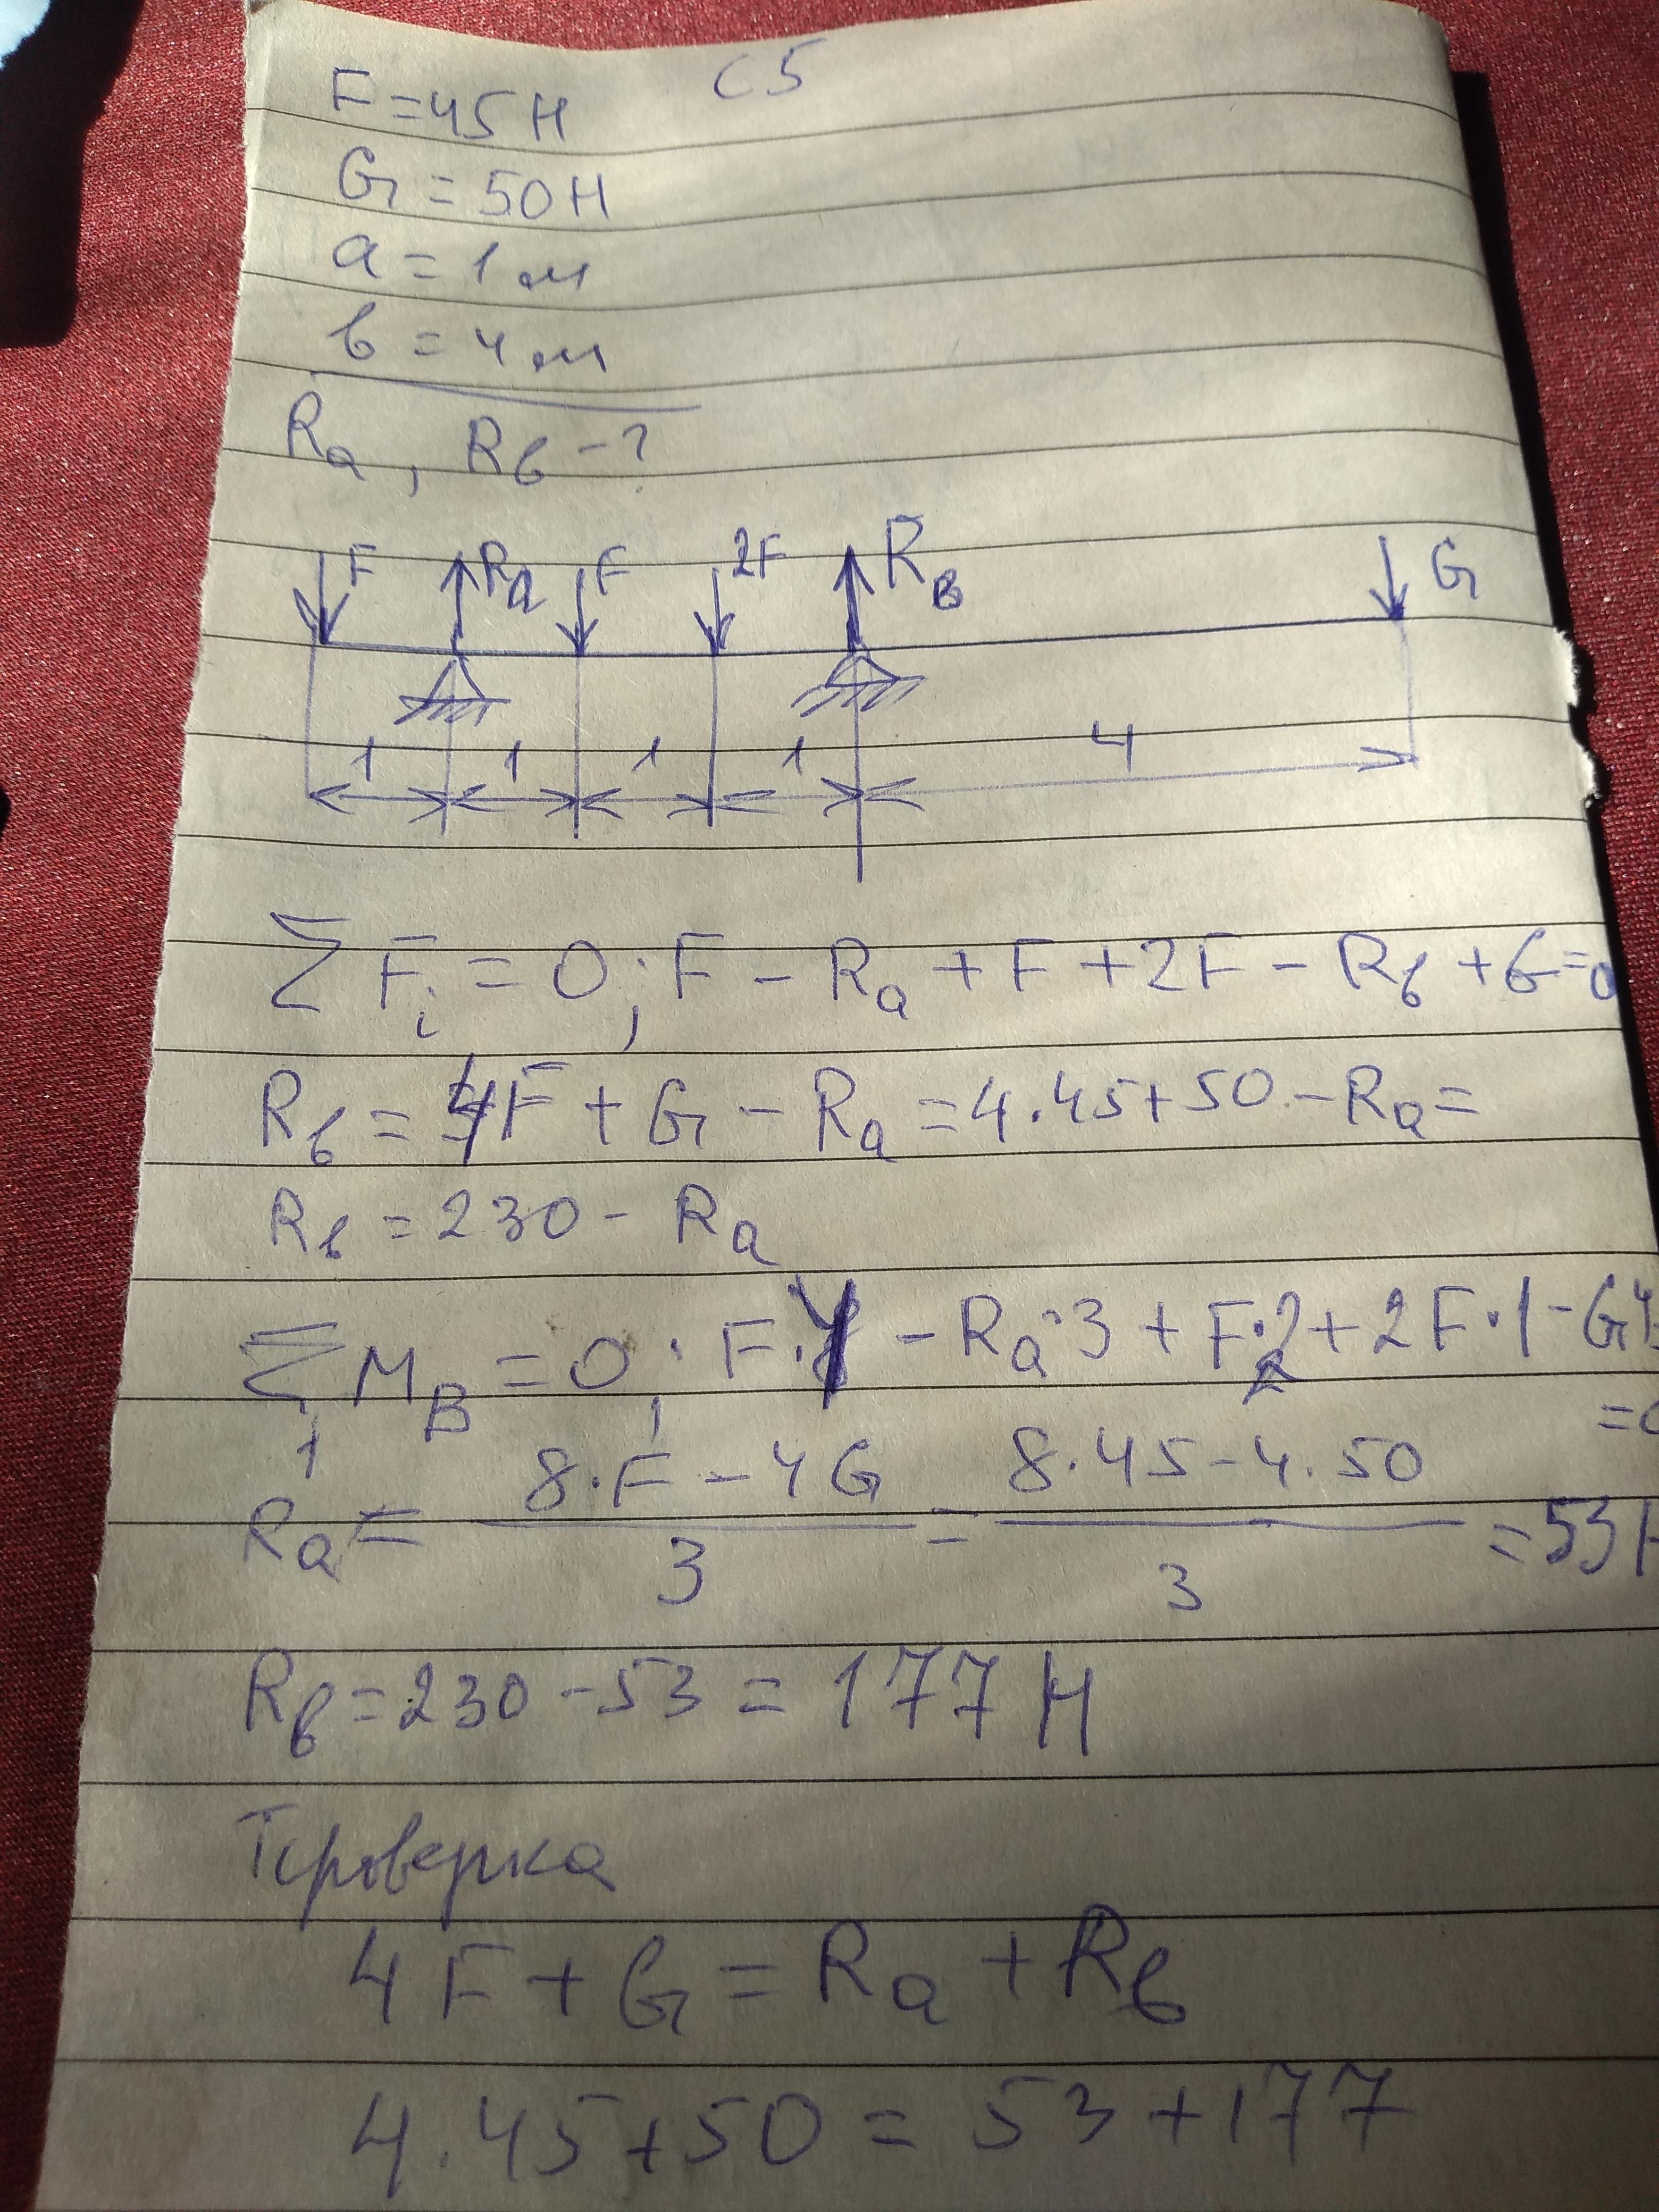 С5
F = 45 Н
G = 50 Н
a = 1 м
в = 4 м
Ra, Rв - ?
F Ra F 2F RB G
1 1 1 1 4
∑Fi = 0; F - Ra + F + 2F - Rв + G = 0
Rв = 4F + G - Ra = 4·45 + 50 - Ra =
Rв = 230 - Ra
∑MB = 0; F·4 - Ra·3 + F·2 + 2F·1 - G4
= 0
Ra = (8·F - 4G)/3 = (8·45 - 4·50)/3 = 53 Н
Rв = 230 - 53 = 177 Н
Проверка
4F + G = Ra + Rв
4·45 + 50 = 53 + 177